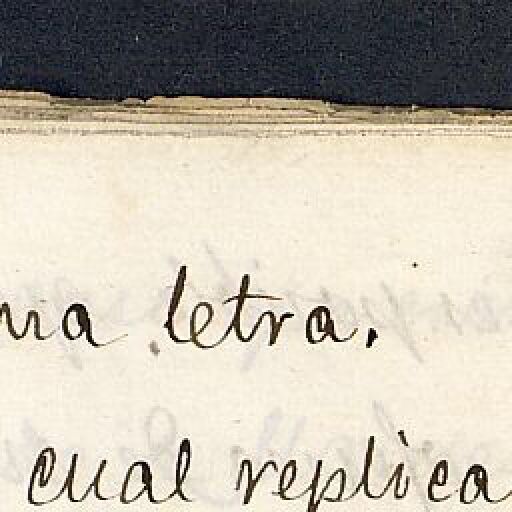 letra.
cual replica